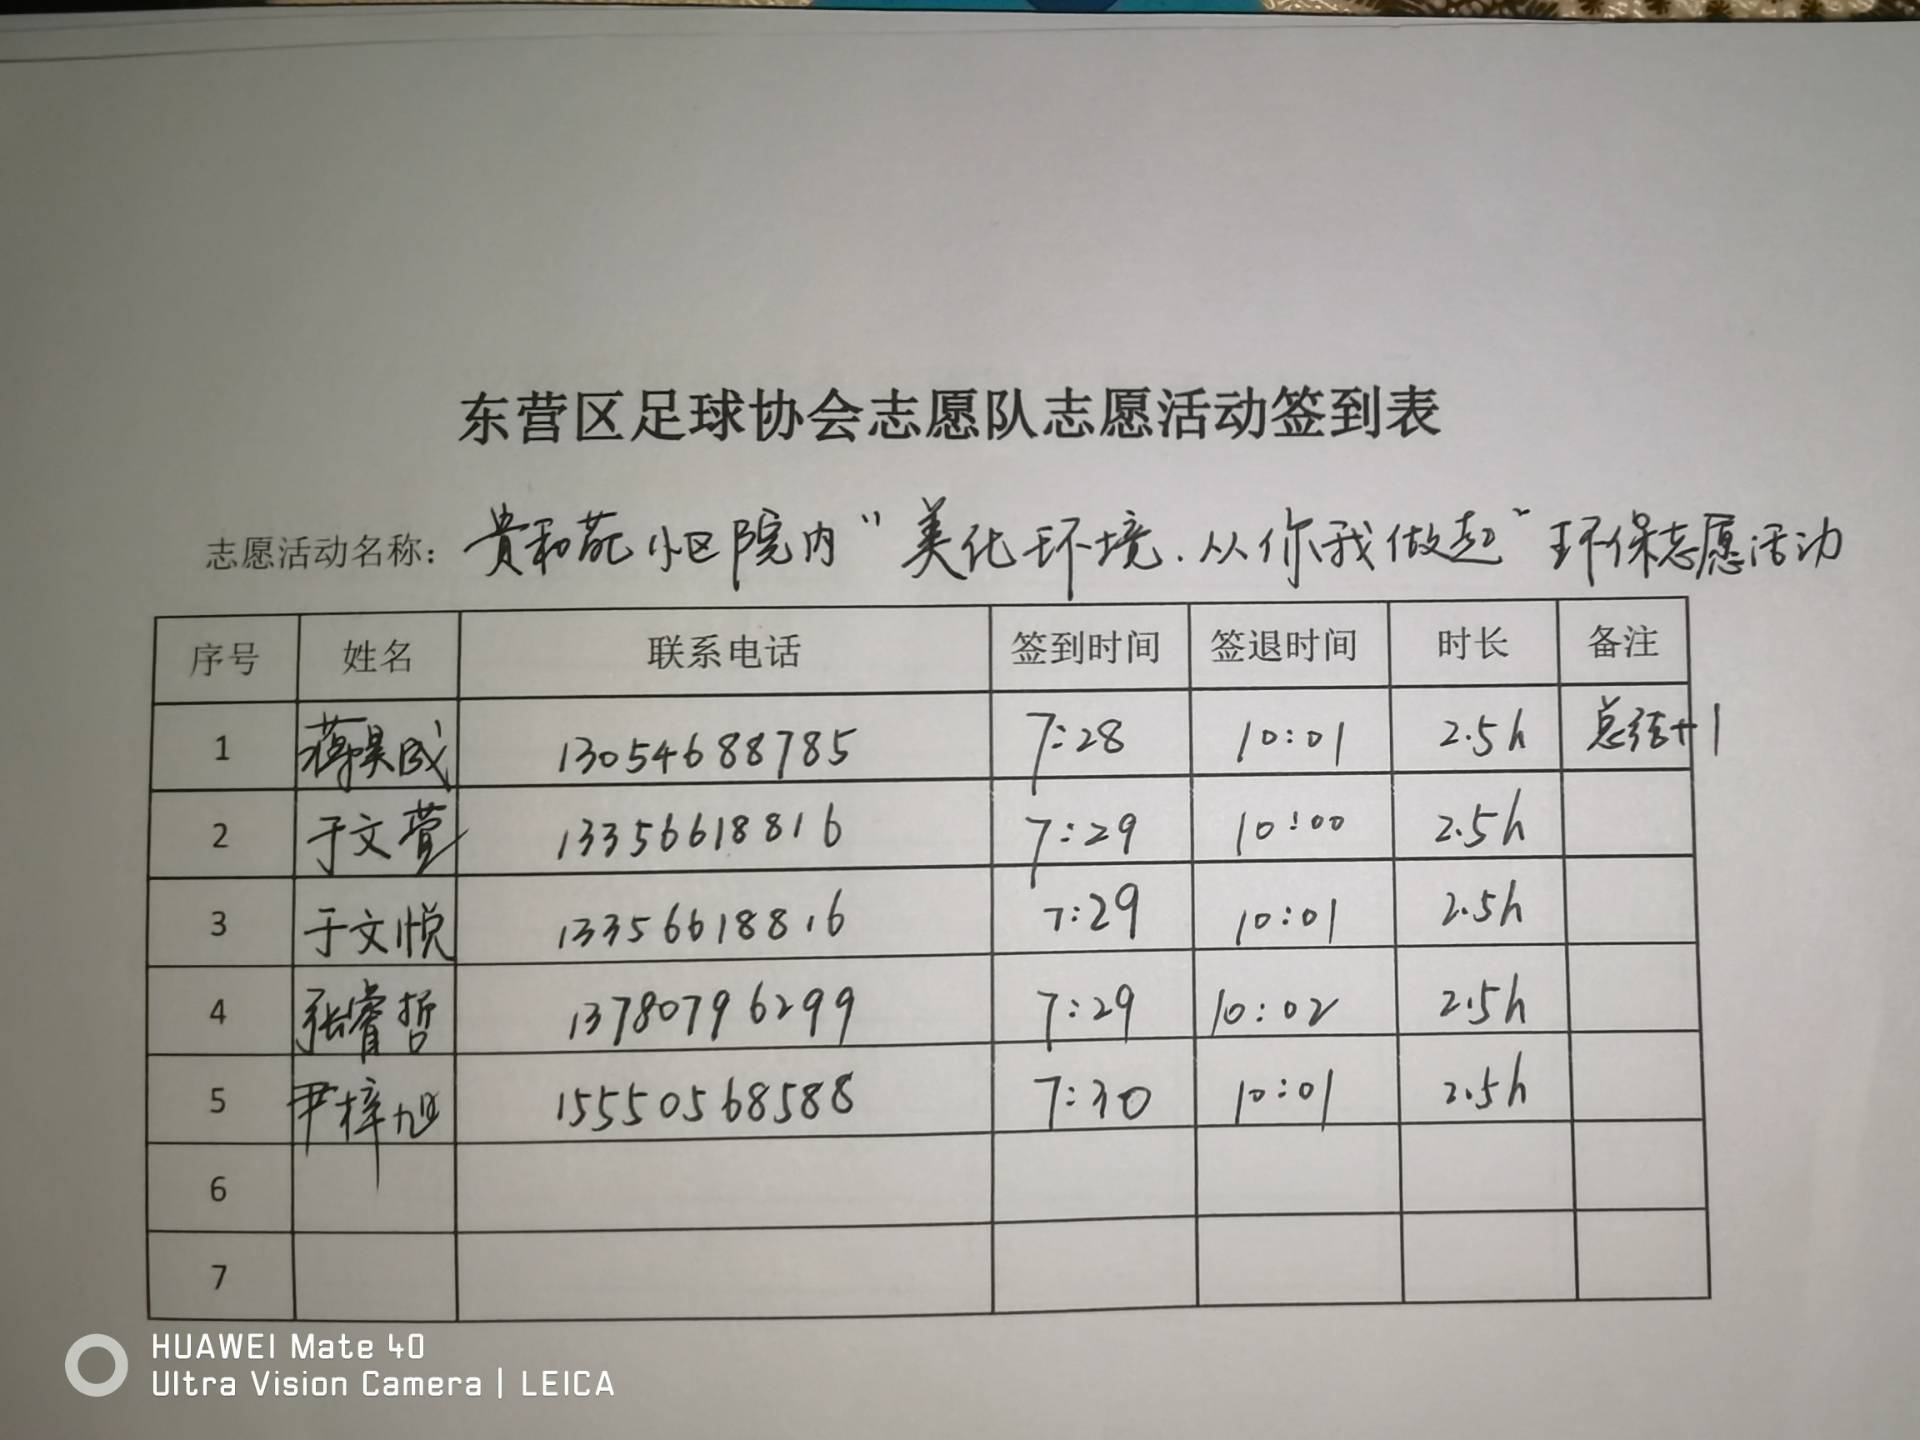 东营区足球协会志愿队志愿活动签到表
志愿活动名称：贵和苑小区院内“美化环境.从你我做起”环保志愿活动
序号 姓名 联系电话 签到时间 签退时间 时长 备注
1 蒋昊成 13054688785 7:28 10:01 2.5h 总结+1
2 于文萱 13356618816 7:29 10:00 2.5h
3 于文悦 13356618816 7:29 10:01 2.5h
4 张睿哲 13780796299 7:29 10:02 2.5h
5 尹梓旭 15550568588 7:30 10:01 2.5h
6
7
HUAWEI Mate 40
Ultra Vision Camera | LEICA